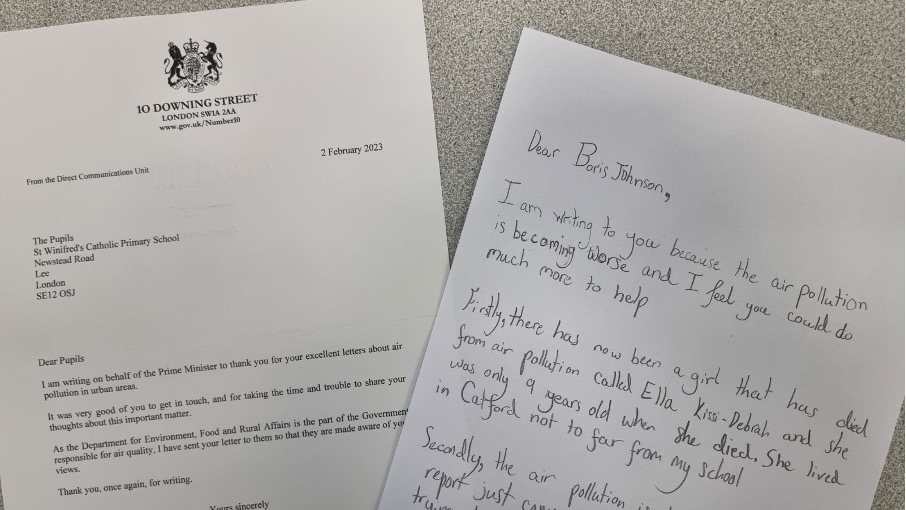 10 DOWNING STREET
LONDON SW1A 2AA
www.gov.uk/Number10
2 February 2023
From the Direct Communications Unit
The Pupils
St Winifred's Catholic Primary School
Newstead Road
Lee
London
SE12 OSJ
Dear Pupils
I am writing on behalf of the Prime Minister to thank you for your excellent letters about air
pollution in urban areas.
It was very good of you to get in touch, and for taking the time and trouble to share your
thoughts about this important matter.
As the Department for Environment, Food and Rural Affairs is the part of the Government
responsible for air quality, I have sent your letter to them so that they are made aware of you
views.
Thank you, once again, for writing.
Yours sincerely
Dear Boris Johnson,
I am writing to you because the air pollution
is becoming worse and I feel you could do
much more to help
Firstly, there has now been a girl that has died
from air pollution called Ella Kissi-Debrah and she
was only 9 years old when she died. She lived
in Catford not to far from my school
Secondly, the air pollution
report just